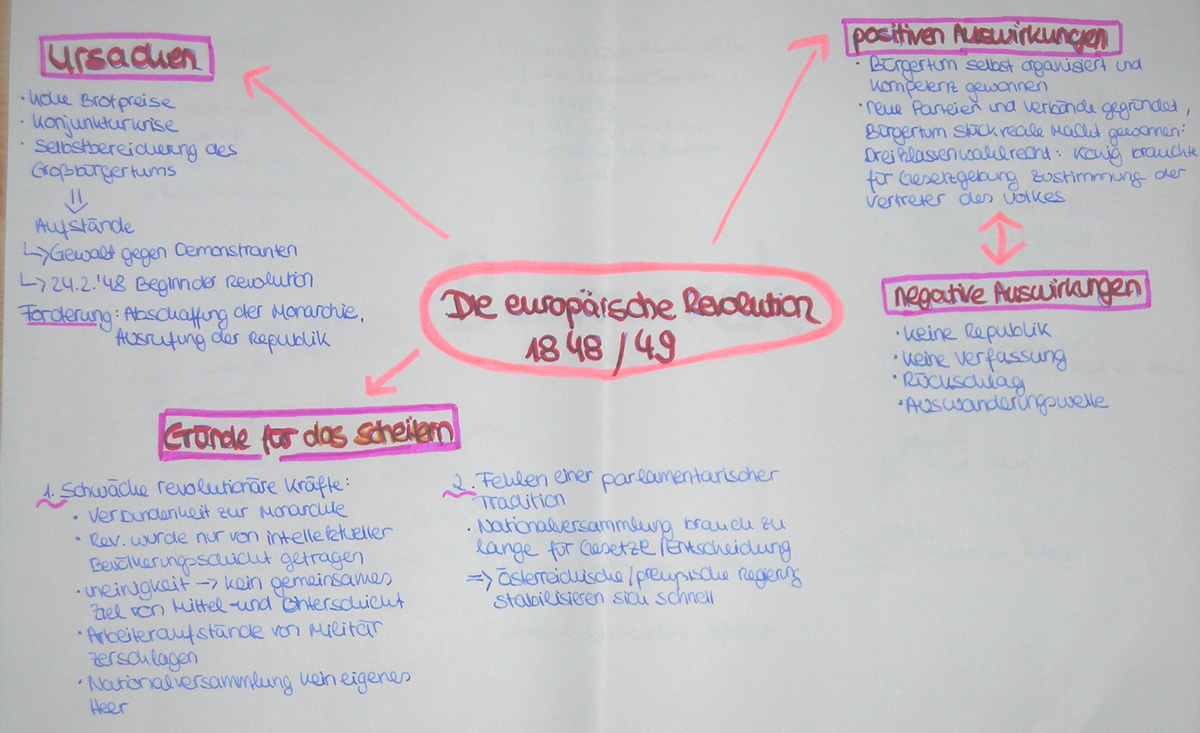 Die europäische Revolution
1848/49
Ursachen
· hohe Brotpreise
· Konjunkturkrise
· Selbstbereicherung des
Großbürgertums
⇓
Aufstände
↳ Gewalt gegen Demonstranten
↳ 24.2.'48 Beginn der Revolution
Forderung: Abschaffung der Monarchie,
Ausrufung der Republik
positiven Auswirkungen
· Bürgertum selbst organisiert und
Kompetenz gewonnen
· neue Parteien und Verbände gegründet,
Bürgertum Stück reale Macht gewonnen:
Dreiklassenwahlrecht: König brauchte
für Gesetzgebung Zustimmung der
Vertreter des Volkes
negative Auswirkungen
· keine Republik
· keine Verfassung
· Rückschlag
· Auswanderungswelle
Gründe für das Scheitern
1. Schwäche revolutionäre Kräfte:
· Verbundenheit zur Monarchie
· Rev. wurde nur von intellektueller
Bevölkerungsschicht getragen
· uneinigkeit → kein gemeinsames
Ziel von Mittel- und Unterschicht
· Arbeiteraufstände von Militär
zerschlagen
· Nationalversammlung kein eigenes
Heer
2. Fehlen einer parlamentarischer
Tradition
· Nationalversammlung brauch zu
lange für Gesetze/Entscheidung
⇒ Österreichische/preußische Regierung
stabilisieren sich schnell